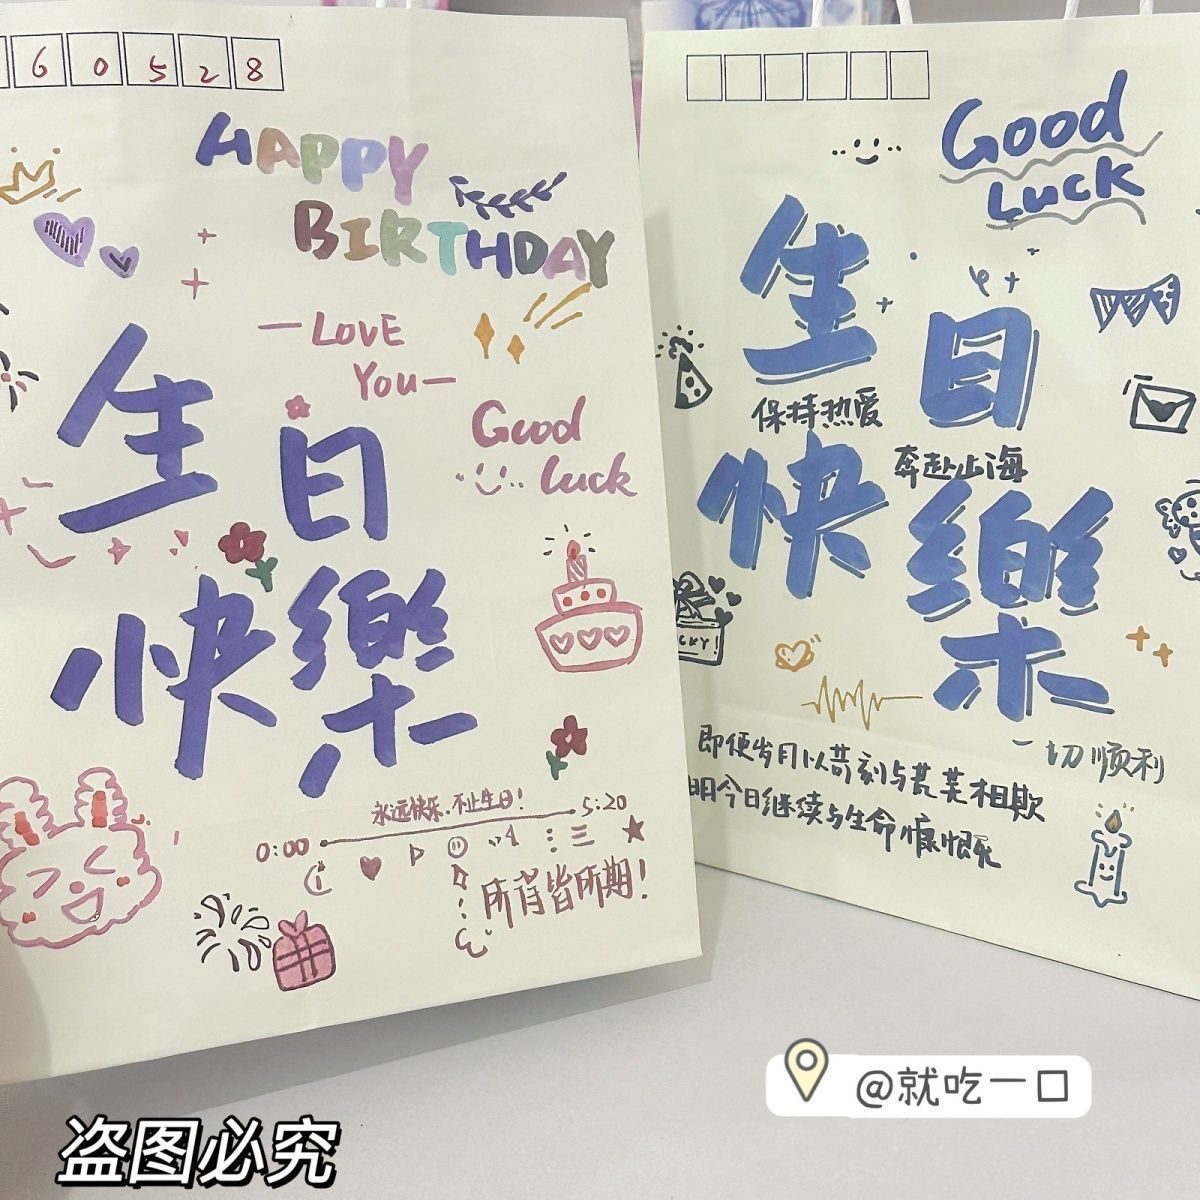 60528
HAPPY
BIRTHDAY
—LOVE
You—
Good
luck
生日
快樂
永远快乐,不止生日!
0:00
5:20
所得皆所期!
Good
Luck
生日
保持热爱
奔赴山海
快樂
CKY!
一切顺利
即便岁月以苛刻与荒芜相欺
明今日继续与生命慷慨
@就吃一口
盗图必究